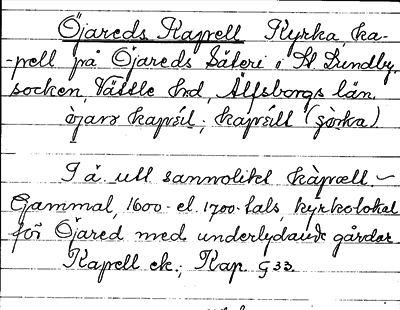 Öjareds Kapell Kyrka ka-
-pell på Öjareds Säteri i St. Lundby
socken, Vättle hd, Älfsborgs län.
kapsíl; kapsíll (
I ä. utt sannolikt kàpæll. ~
Gammal, 1600- el. 1700-tals, kyrkolokal
för Öjared med underlydande gårdar.
Kapell ek.; Kap G 33.